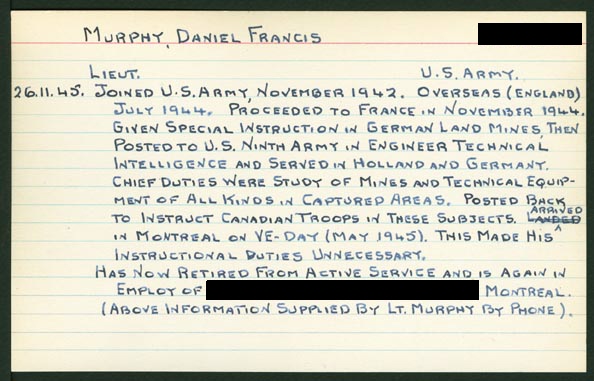 MURPHY, DANIEL FRANCIS
LIEUT. U.S. ARMY.
26.11.45. JOINED U.S. ARMY, NOVEMBER 1942. OVERSEAS (ENGLAND)
JULY 1944. PROCEEDED TO FRANCE IN NOVEMBER 1944.
GIVEN SPECIAL INSTRUCTION IN GERMAN LAND MINES, THEN
POSTED TO U.S. NINTH ARMY IN ENGINEER TECHNICAL
INTELLIGENCE AND SERVED IN HOLLAND AND GERMANY.
CHIEF DUTIES WERE STUDY OF MINES AND TECHNICAL EQUIP-
MENT OF ALL KINDS IN CAPTURED AREAS. POSTED BACK
TO INSTRUCT CANADIAN TROOPS IN THESE SUBJECTS. LANDED ARRIVED
IN MONTREAL ON VE-DAY (MAY 1945). THIS MADE HIS
INSTRUCTIONAL DUTIES UNNECESSARY.
HAS NOW RETIRED FROM ACTIVE SERVICE AND IS AGAIN IN
EMPLOY OF MONTREAL.
(ABOVE INFORMATION SUPPLIED BY LT. MURPHY BY PHONE).